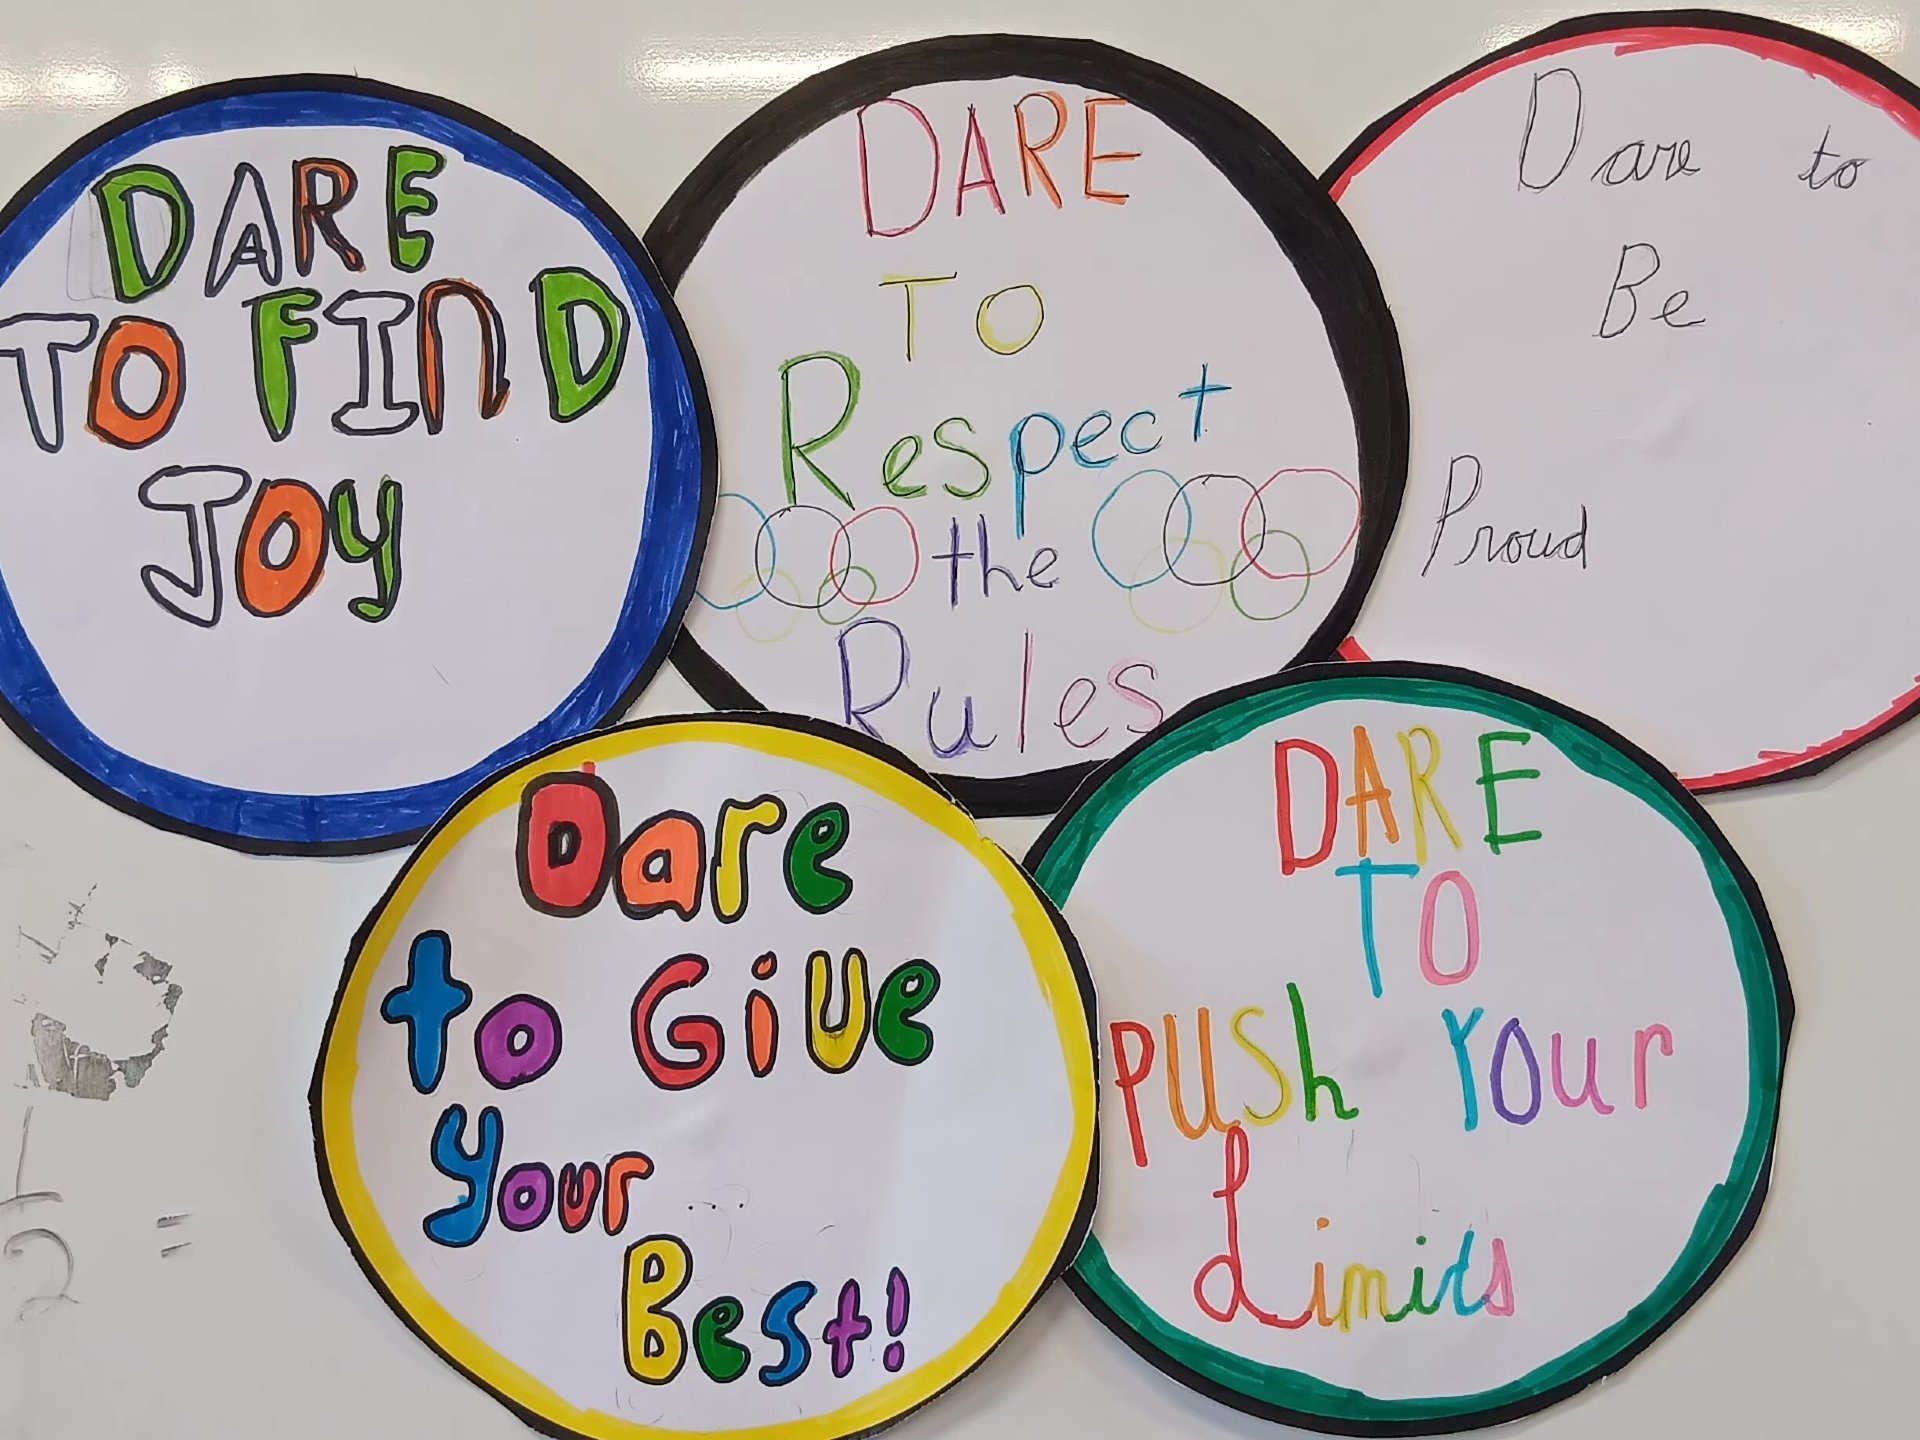 DARE
TO FIND
JOY
DARE
TO
Respect
the
Rules
Dare to
Be
Proud
Dare
to Give
Your
Best!
DARE
TO
PUSh YOur
Limits
1
2 =